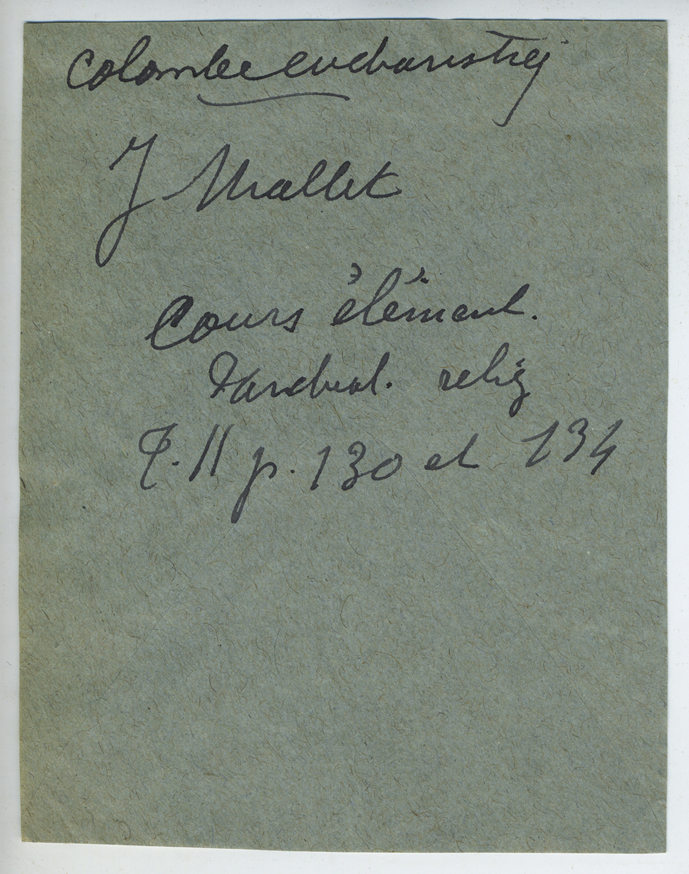 Colombe eucharistiq
J Mallet
Cours élément.
d'archéol. relig
T. II p. 130 et 134